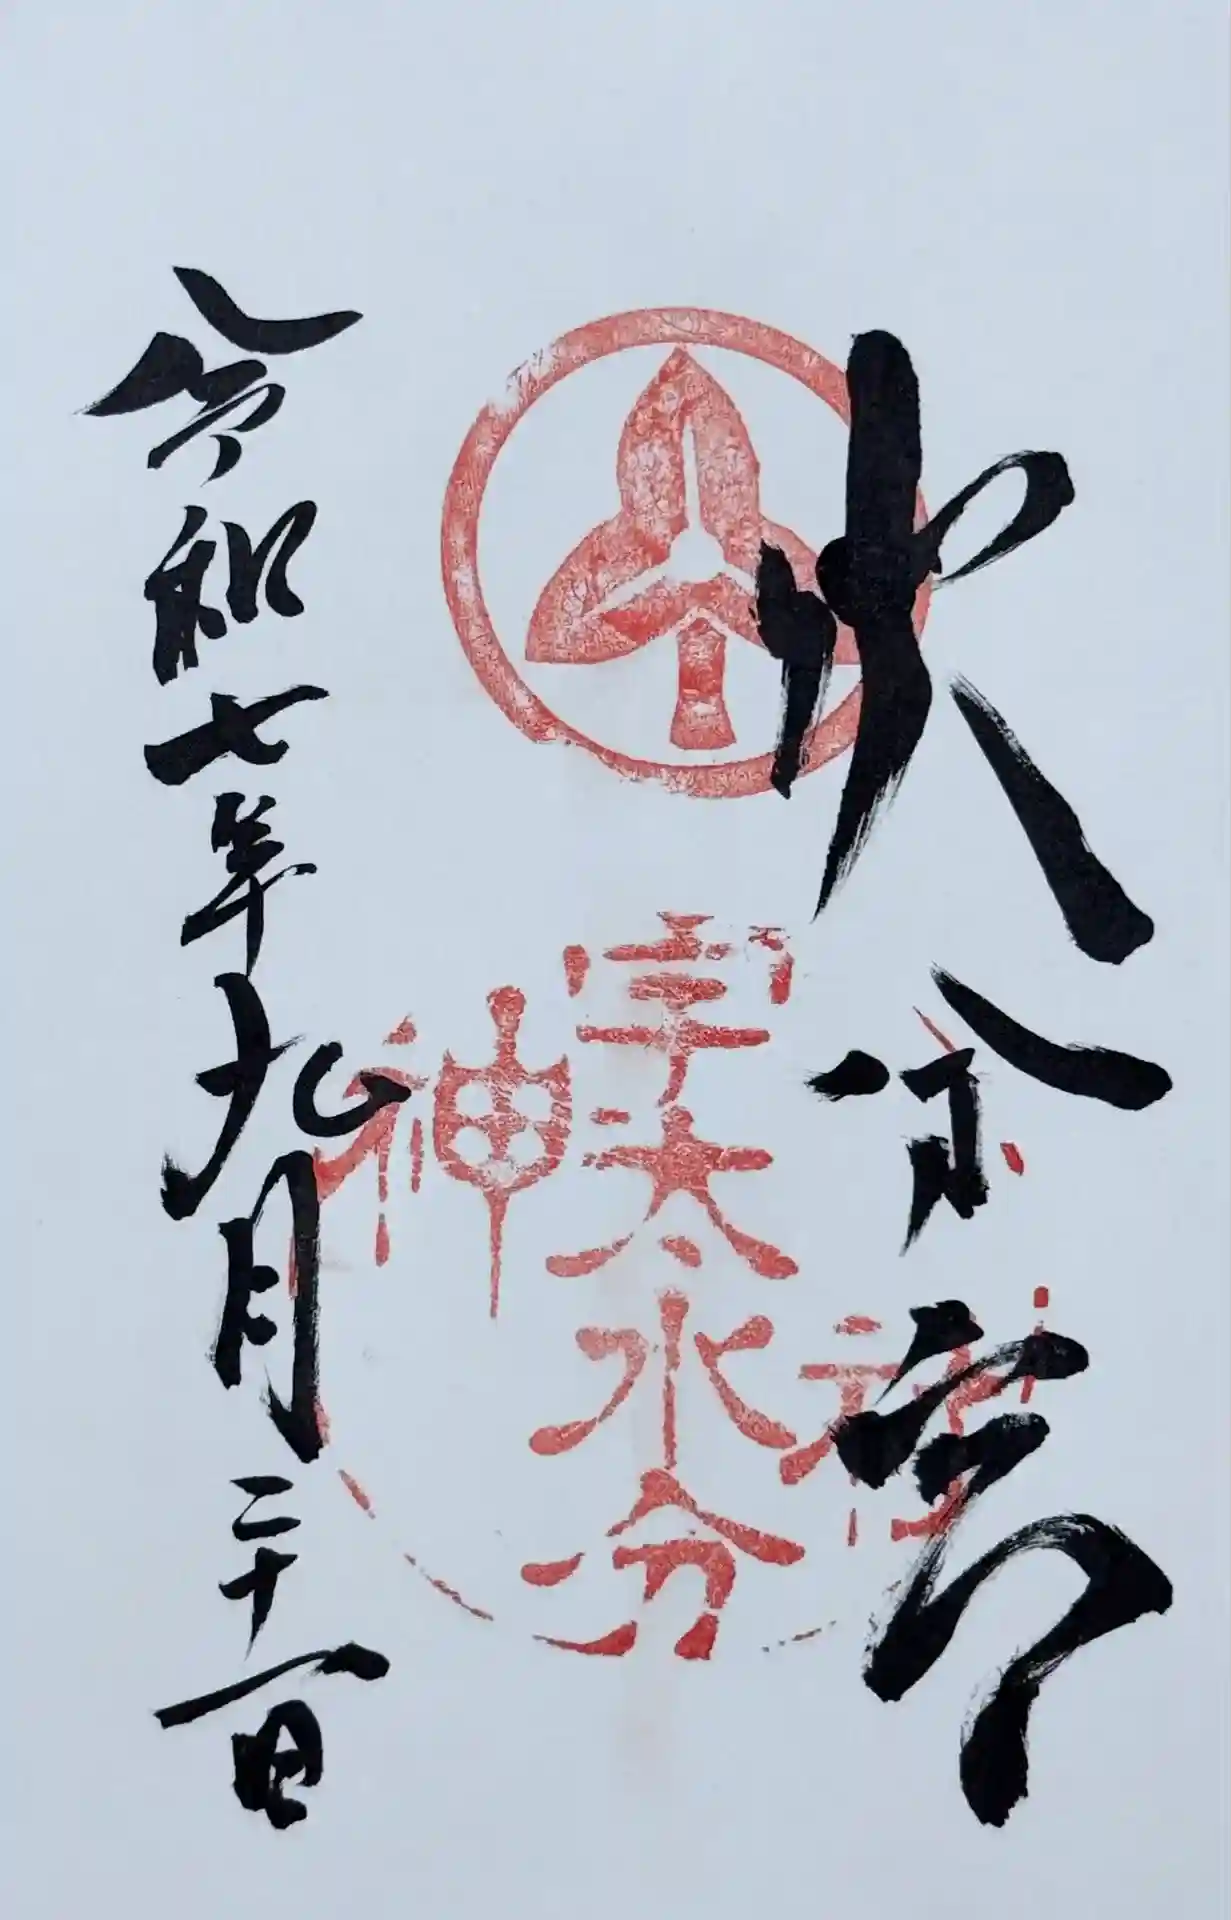 水分宮
宇太水分
神社
令和七年九月二十一日